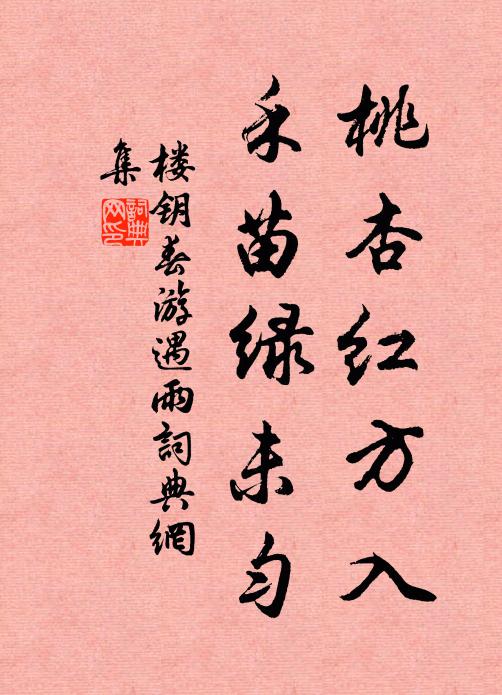 桃杏红方入
禾苗绿未匀
楼钥春游遇雨詞典網
集
詞典
网印